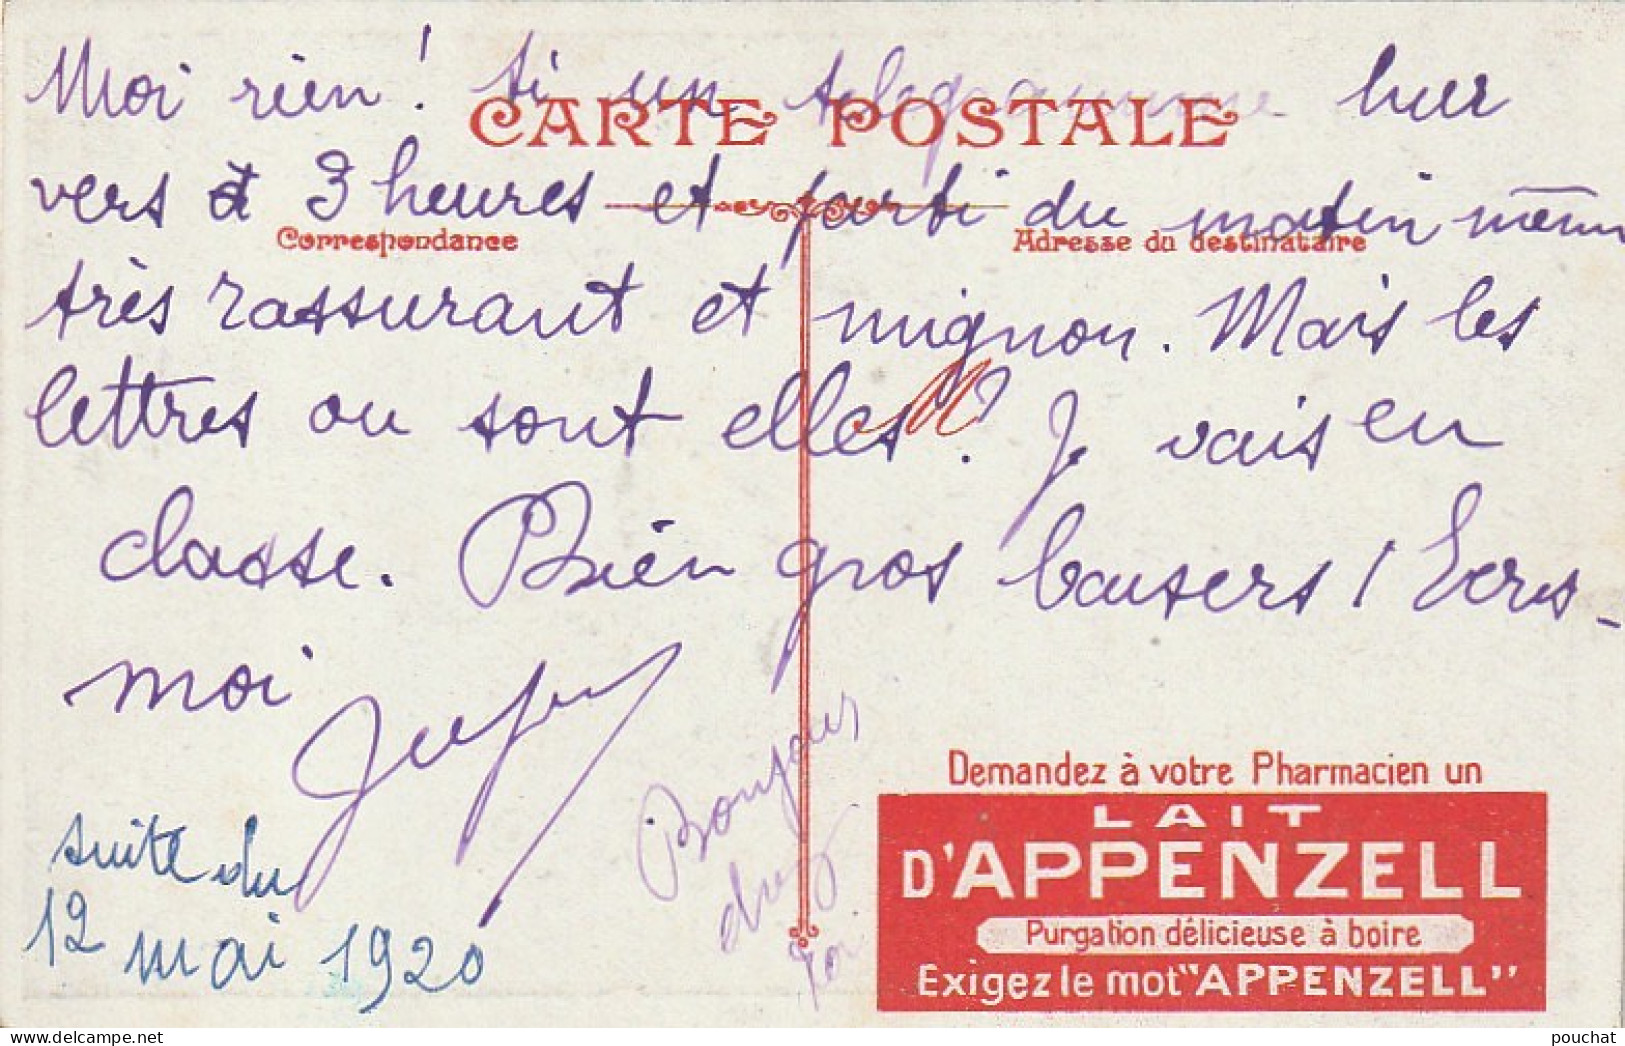 Moi rien ! si un telegramme hier
CARTE POSTALE
vers à 3 heures et parti du matin même
Correspondance
Adresse du destinataire
très rassurant et mignon. Mais les
lettres ou sont elles ? Je vais en
classe. Bien gros baisers ! Ecris-
moi
Bonjour
chez
suite du
12 mai 1920
Demandez à votre Pharmacien un
LAIT
D'APPENZELL
Purgation délicieuse à boire
Exigez le mot "APPENZELL"
pouchat